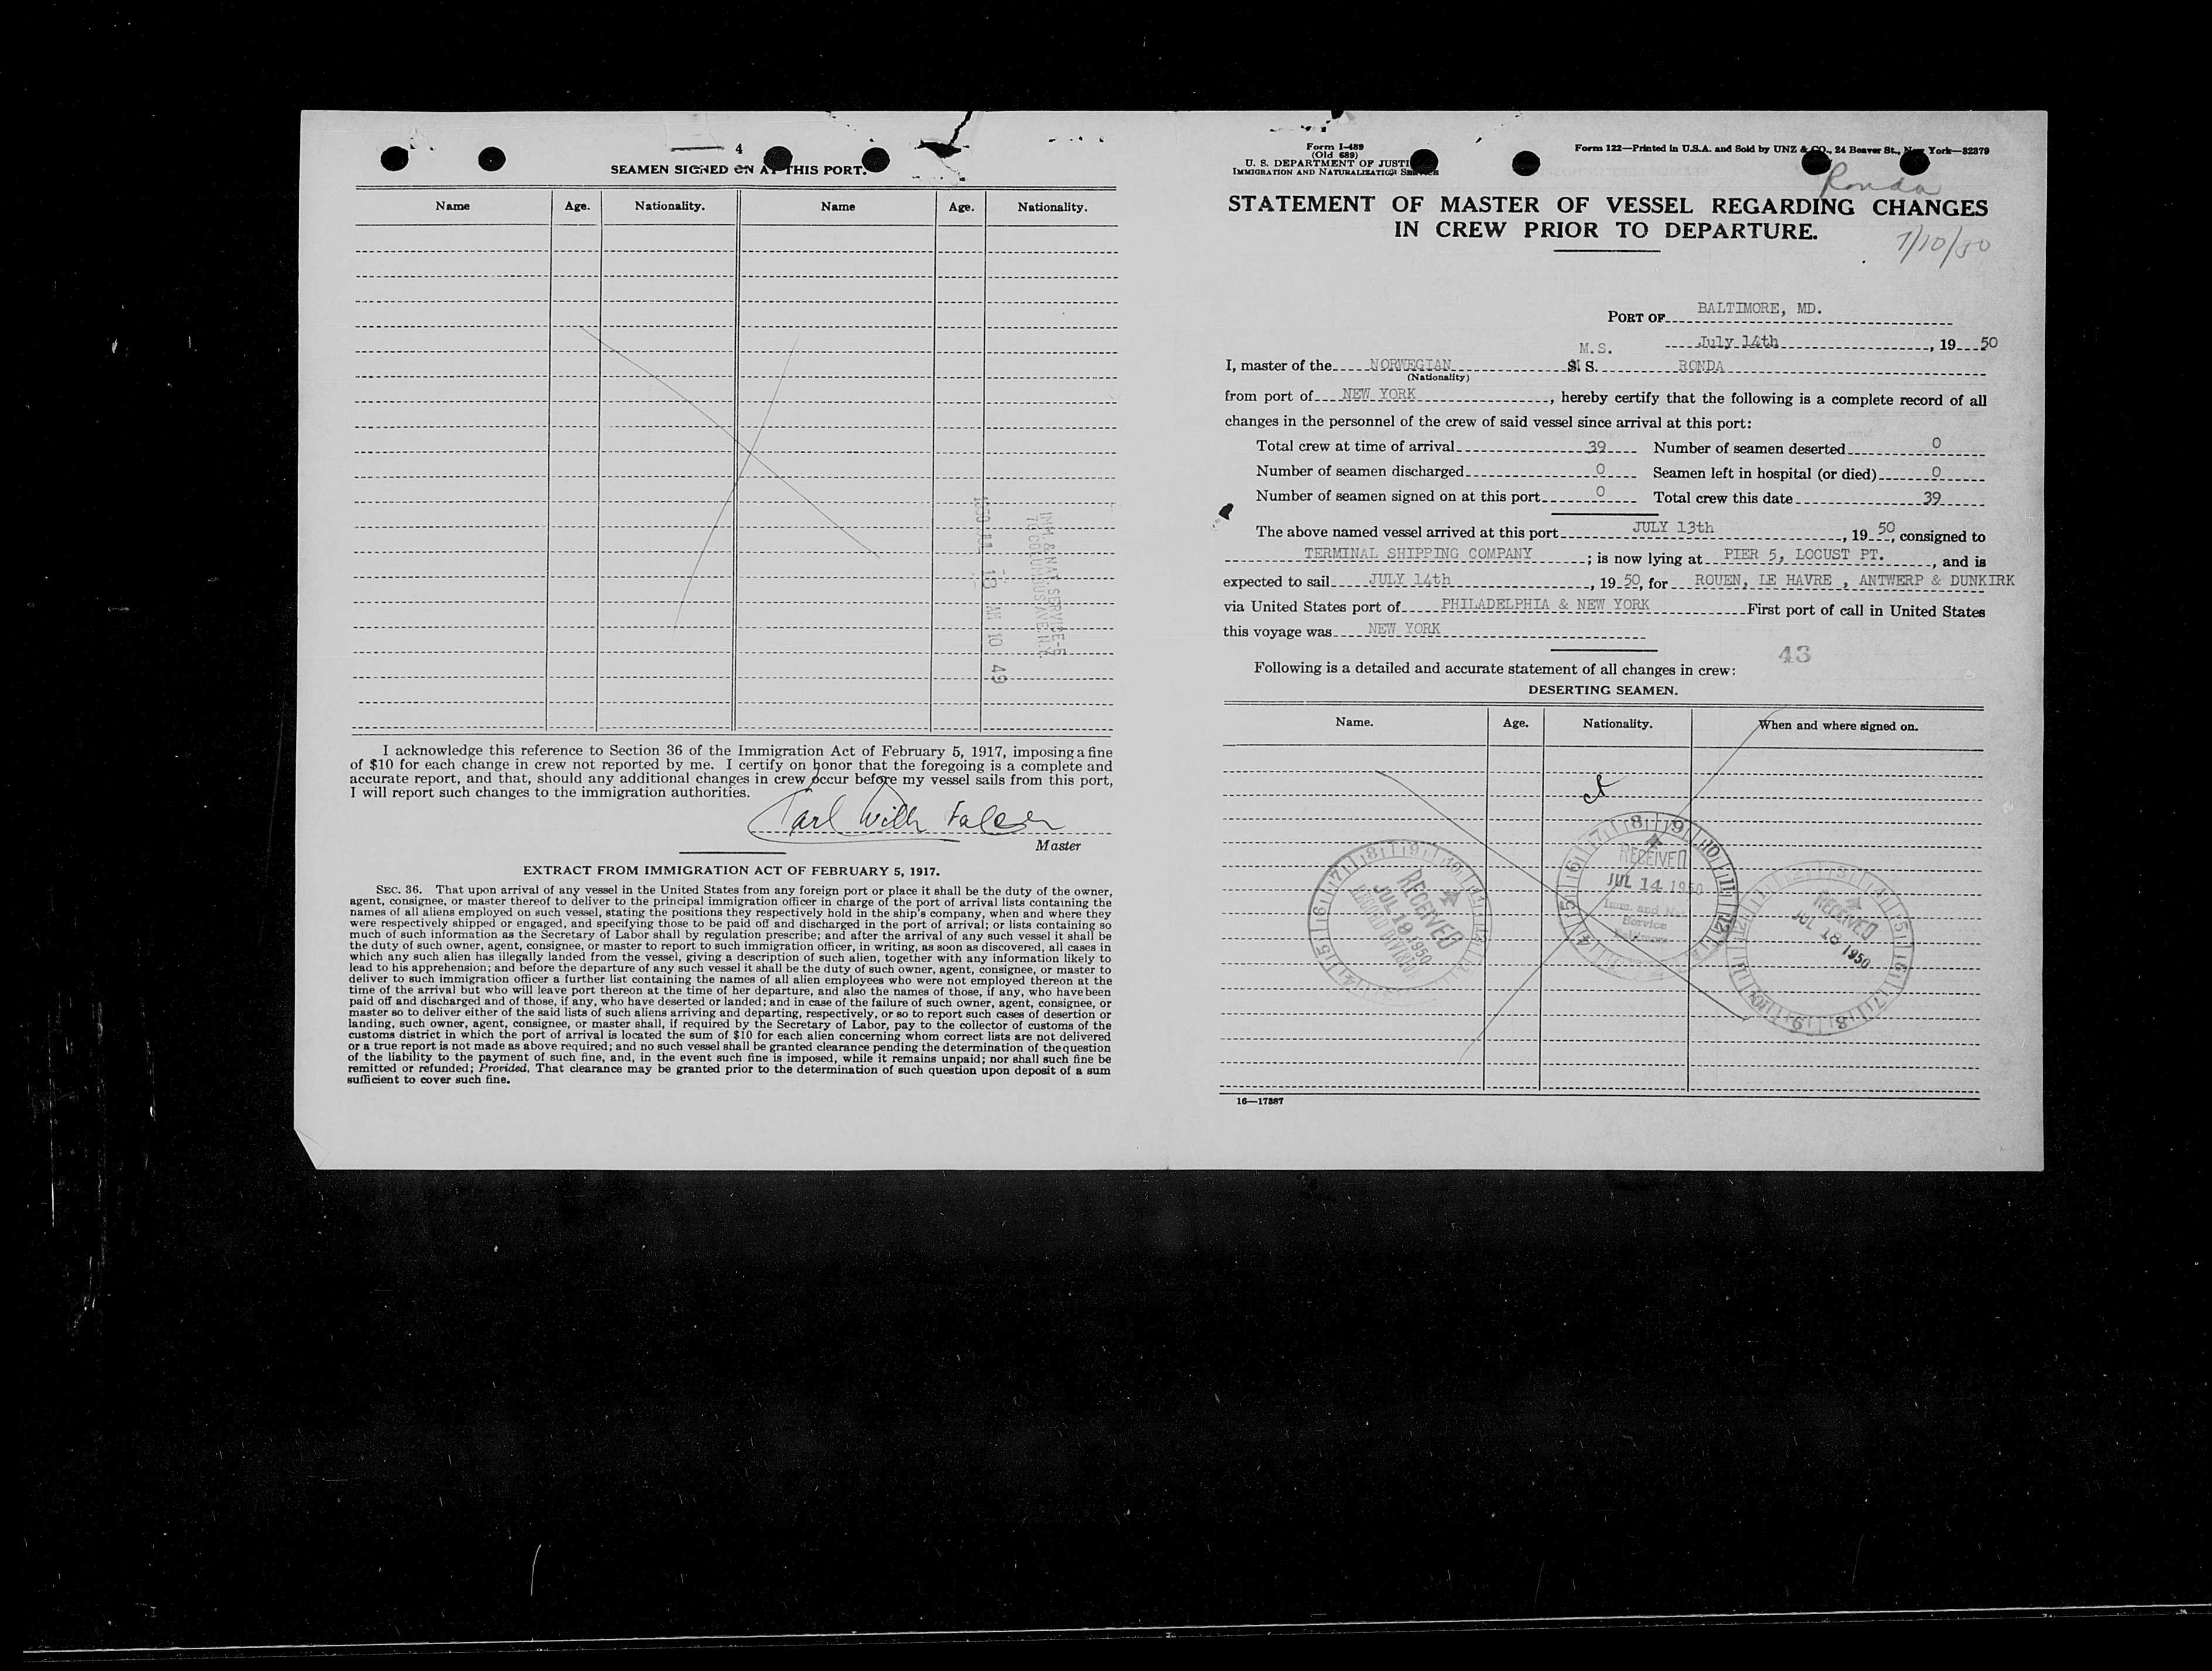 4
SEAMEN SIGNED ON AT THIS PORT.
Name Age. Nationality. Name Age. Nationality.
IMM. & NAT. SERVICE-E
70 COLUMBUS AVE. N.Y.
1950 JUL 18 AM 10 49
I acknowledge this reference to Section 36 of the Immigration Act of February 5, 1917, imposing a fine
of $10 for each change in crew not reported by me. I certify on honor that the foregoing is a complete and
accurate report, and that, should any additional changes in crew occur before my vessel sails from this port,
I will report such changes to the immigration authorities.
Carl Wilh Falsen
Master
EXTRACT FROM IMMIGRATION ACT OF FEBRUARY 5, 1917.
SEC. 36. That upon arrival of any vessel in the United States from any foreign port or place it shall be the duty of the owner,
agent, consignee, or master thereof to deliver to the principal immigration officer in charge of the port of arrival lists containing the
names of all aliens employed on such vessel, stating the positions they respectively hold in the ship's company, when and where they
were respectively shipped or engaged, and specifying those to be paid off and discharged in the port of arrival; or lists containing so
much of such information as the Secretary of Labor shall by regulation prescribe; and after the arrival of any such vessel it shall be
the duty of such owner, agent, consignee, or master to report to such immigration officer, in writing, as soon as discovered, all cases in
which any such alien has illegally landed from the vessel, giving a description of such alien, together with any information likely to
lead to his apprehension; and before the departure of any such vessel it shall be the duty of such owner, agent, consignee, or master to
deliver to such immigration officer a further list containing the names of all alien employees who were not employed thereon at the
time of the arrival but who will leave port thereon at the time of her departure, and also the names of those, if any, who have been
paid off and discharged and of those, if any, who have deserted or landed; and in case of the failure of such owner, agent, consignee, or
master so to deliver either of the said lists of such aliens arriving and departing, respectively, or so to report such cases of desertion or
landing, such owner, agent, consignee, or master shall, if required by the Secretary of Labor, pay to the collector of customs of the
customs district in which the port of arrival is located the sum of $10 for each alien concerning whom correct lists are not delivered
or a true report is not made as above required; and no such vessel shall be granted clearance pending the determination of the question
of the liability to the payment of such fine, and, in the event such fine is imposed, while it remains unpaid; nor shall such fine be
remitted or refunded; Provided, That clearance may be granted prior to the determination of such question upon deposit of a sum
sufficient to cover such fine.
Form I-489
(Old 689)
U. S. DEPARTMENT OF JUSTI
IMMIGRATION AND NATURALIZATION SERVICE
Form 122—Printed in U.S.A. and Sold by UNZ & CO., 24 Beaver St., New York—82379
Ronda
STATEMENT OF MASTER OF VESSEL REGARDING CHANGES
IN CREW PRIOR TO DEPARTURE.
7/10/50
PORT OF BALTIMORE, MD.
July 14th, 19 50
I, master of the NORWEGIAN M.S. S. S. RONDA
(Nationality)
from port of NEW YORK, hereby certify that the following is a complete record of all
changes in the personnel of the crew of said vessel since arrival at this port:
Total crew at time of arrival 39 Number of seamen deserted 0
Number of seamen discharged 0 Seamen left in hospital (or died) 0
Number of seamen signed on at this port 0 Total crew this date 39
The above named vessel arrived at this port JULY 13th, 19 50, consigned to
TERMINAL SHIPPING COMPANY; is now lying at PIER 5, LOCUST PT., and is
expected to sail JULY 14th, 19 50, for ROUEN, LE HAVRE , ANTWERP & DUNKIRK
via United States port of PHILADELPHIA & NEW YORK First port of call in United States
this voyage was NEW YORK
43
Following is a detailed and accurate statement of all changes in crew:
DESERTING SEAMEN.
Name. Age. Nationality. When and where signed on.
RECEIVED
JUL 18 1950
RECORD DIVISION
RECEIVED
JUL 14 1950
Imm. and Nat.
Service
Baltimore
RECEIVED
JUL 18 1950
16—17887